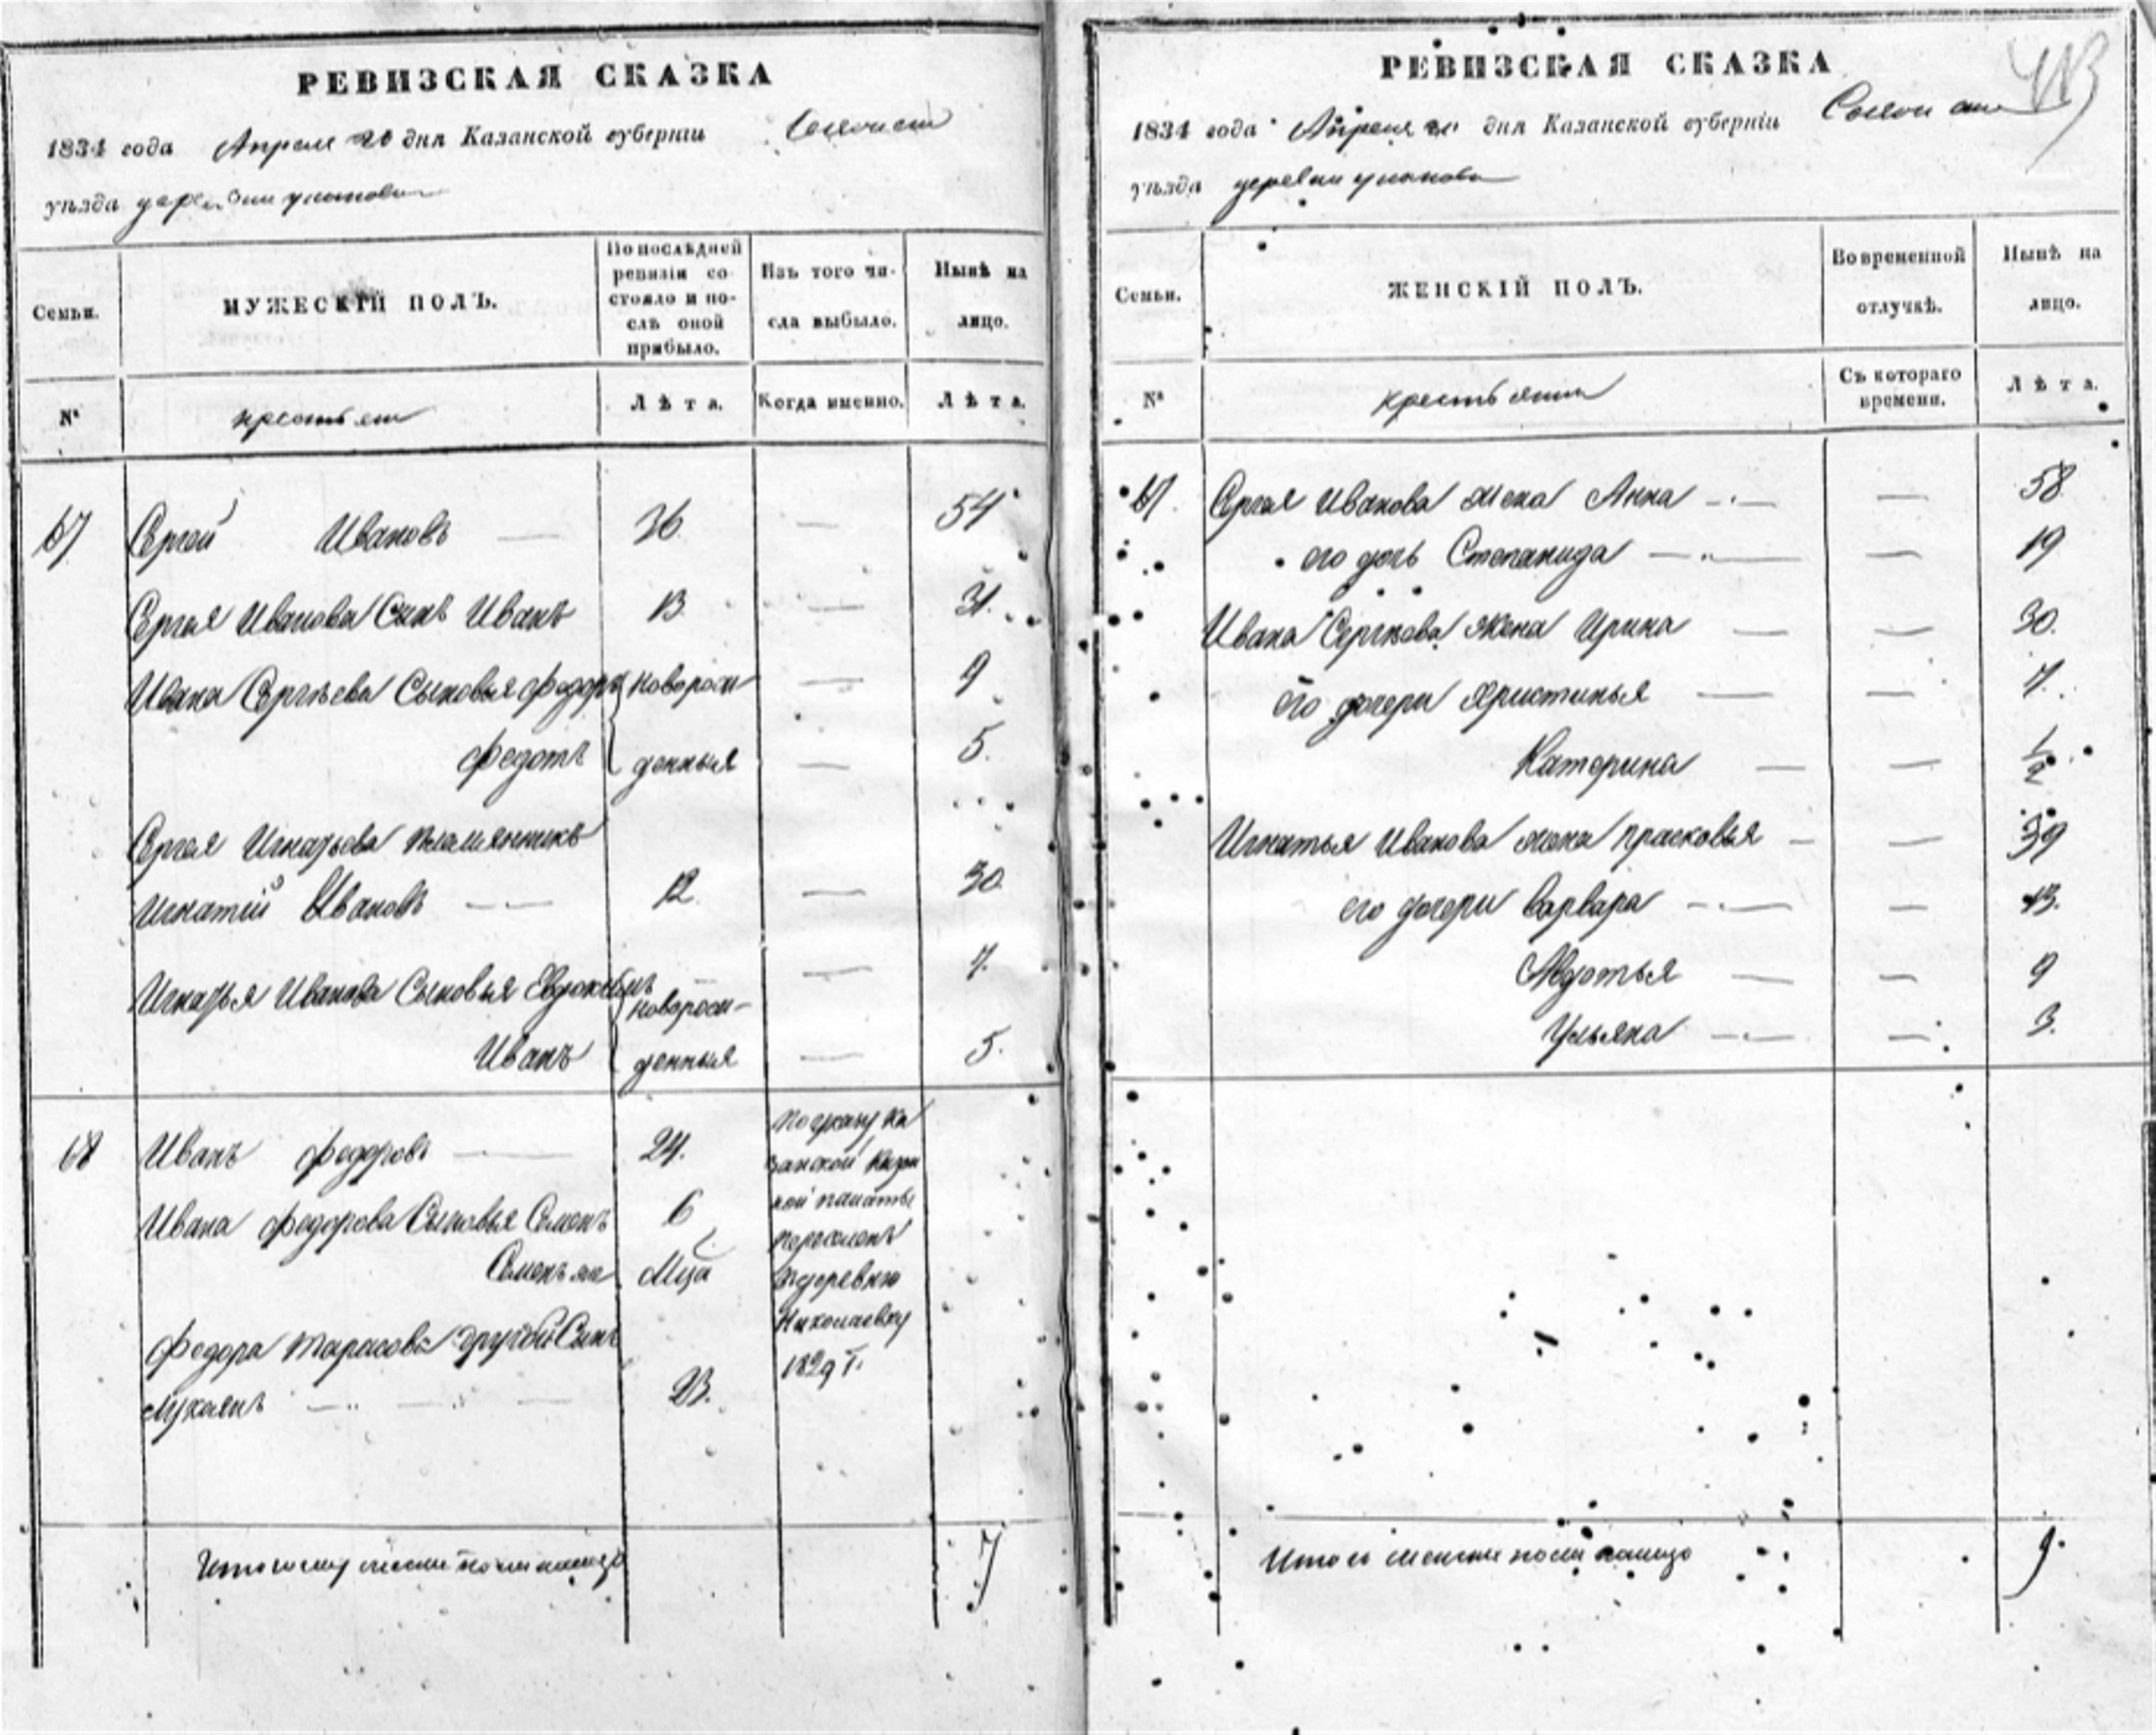 РЕВИЗСКАЯ СКАЗКА
1834 года Апреля 20 дня Казанской губерніи
уѣзда деревни
Семьи.
МУЖЕСКІЙ ПОЛЪ.
По послѣдней ревизіи состояло и послѣ оной прибыло.
Изъ того числа выбыло.
Нынѣ на лицо.
№
крестьян
Лѣта.
Когда именно.
Лѣта.
67 Сергей Ивановъ — 36 — 54
Сергея Иванова Сынъ Иванъ 13 — 31.
Ивана Сергѣева Сыновья Федоръ новорож — 9
Федотъ денныя — 5.
Сергея Игнатьева племянникъ
Игнатій Ивановъ — 12 — 30
Игнатья Иванова Сыновья Евдокимъ новорож- — 7.
Иванъ денныя — 5.
68 Иванъ Федоровъ — 24.
Ивана Федорова Сыновья Семенъ 6
Семенъ же Мца
Федора Тарасова другой Сынъ
Лукиянъ — 23.
По указу Ка
занской Казен
ной палаты
переселенъ
въ деревню
Николаевку
1829 г.
Итого мужеска пола налицо 7
РЕВИЗСКАЯ СКАЗКА
1834 года Апреля 20 дня Казанской губерніи
уѣзда деревни
Семьи.
ЖЕНСКІЙ ПОЛЪ.
Во временной отлучкѣ.
Нынѣ на лицо.
№
крестьяне
Съ котораго времени.
Лѣта.
67. Сергея Иванова жена Анна — — 58
его дочь Степанида — — 19
Ивана Сергѣева жена Ирина — — 30.
его дочери Христинья — — 7.
Катерина — — 1/2
Игнатья Иванова жена Прасковья — — 39
его дочери Варвара — — 13.
Авдотья — — 9
Ульяна — — 3.
Итого женска пола налицо 9.